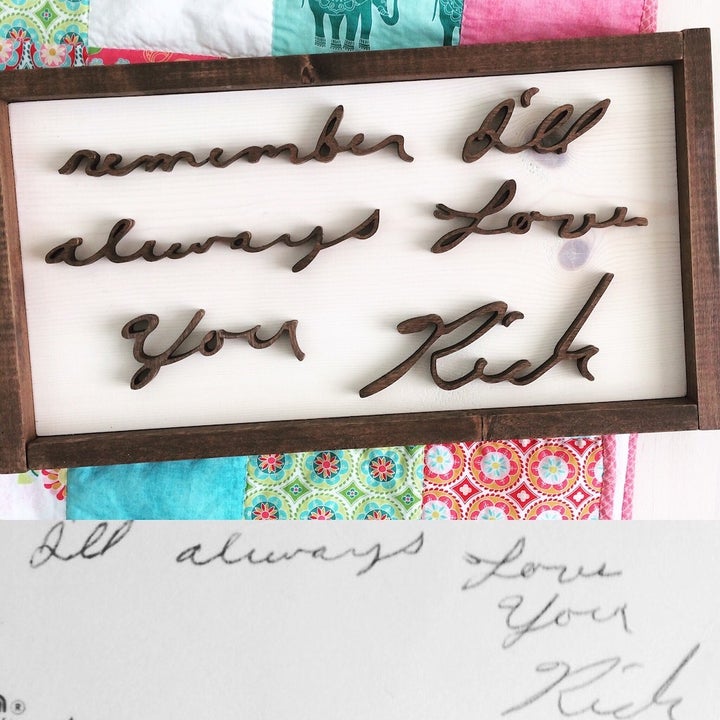 remember I'll
always Love
You Rick
I'll always Love
You
Rick
®